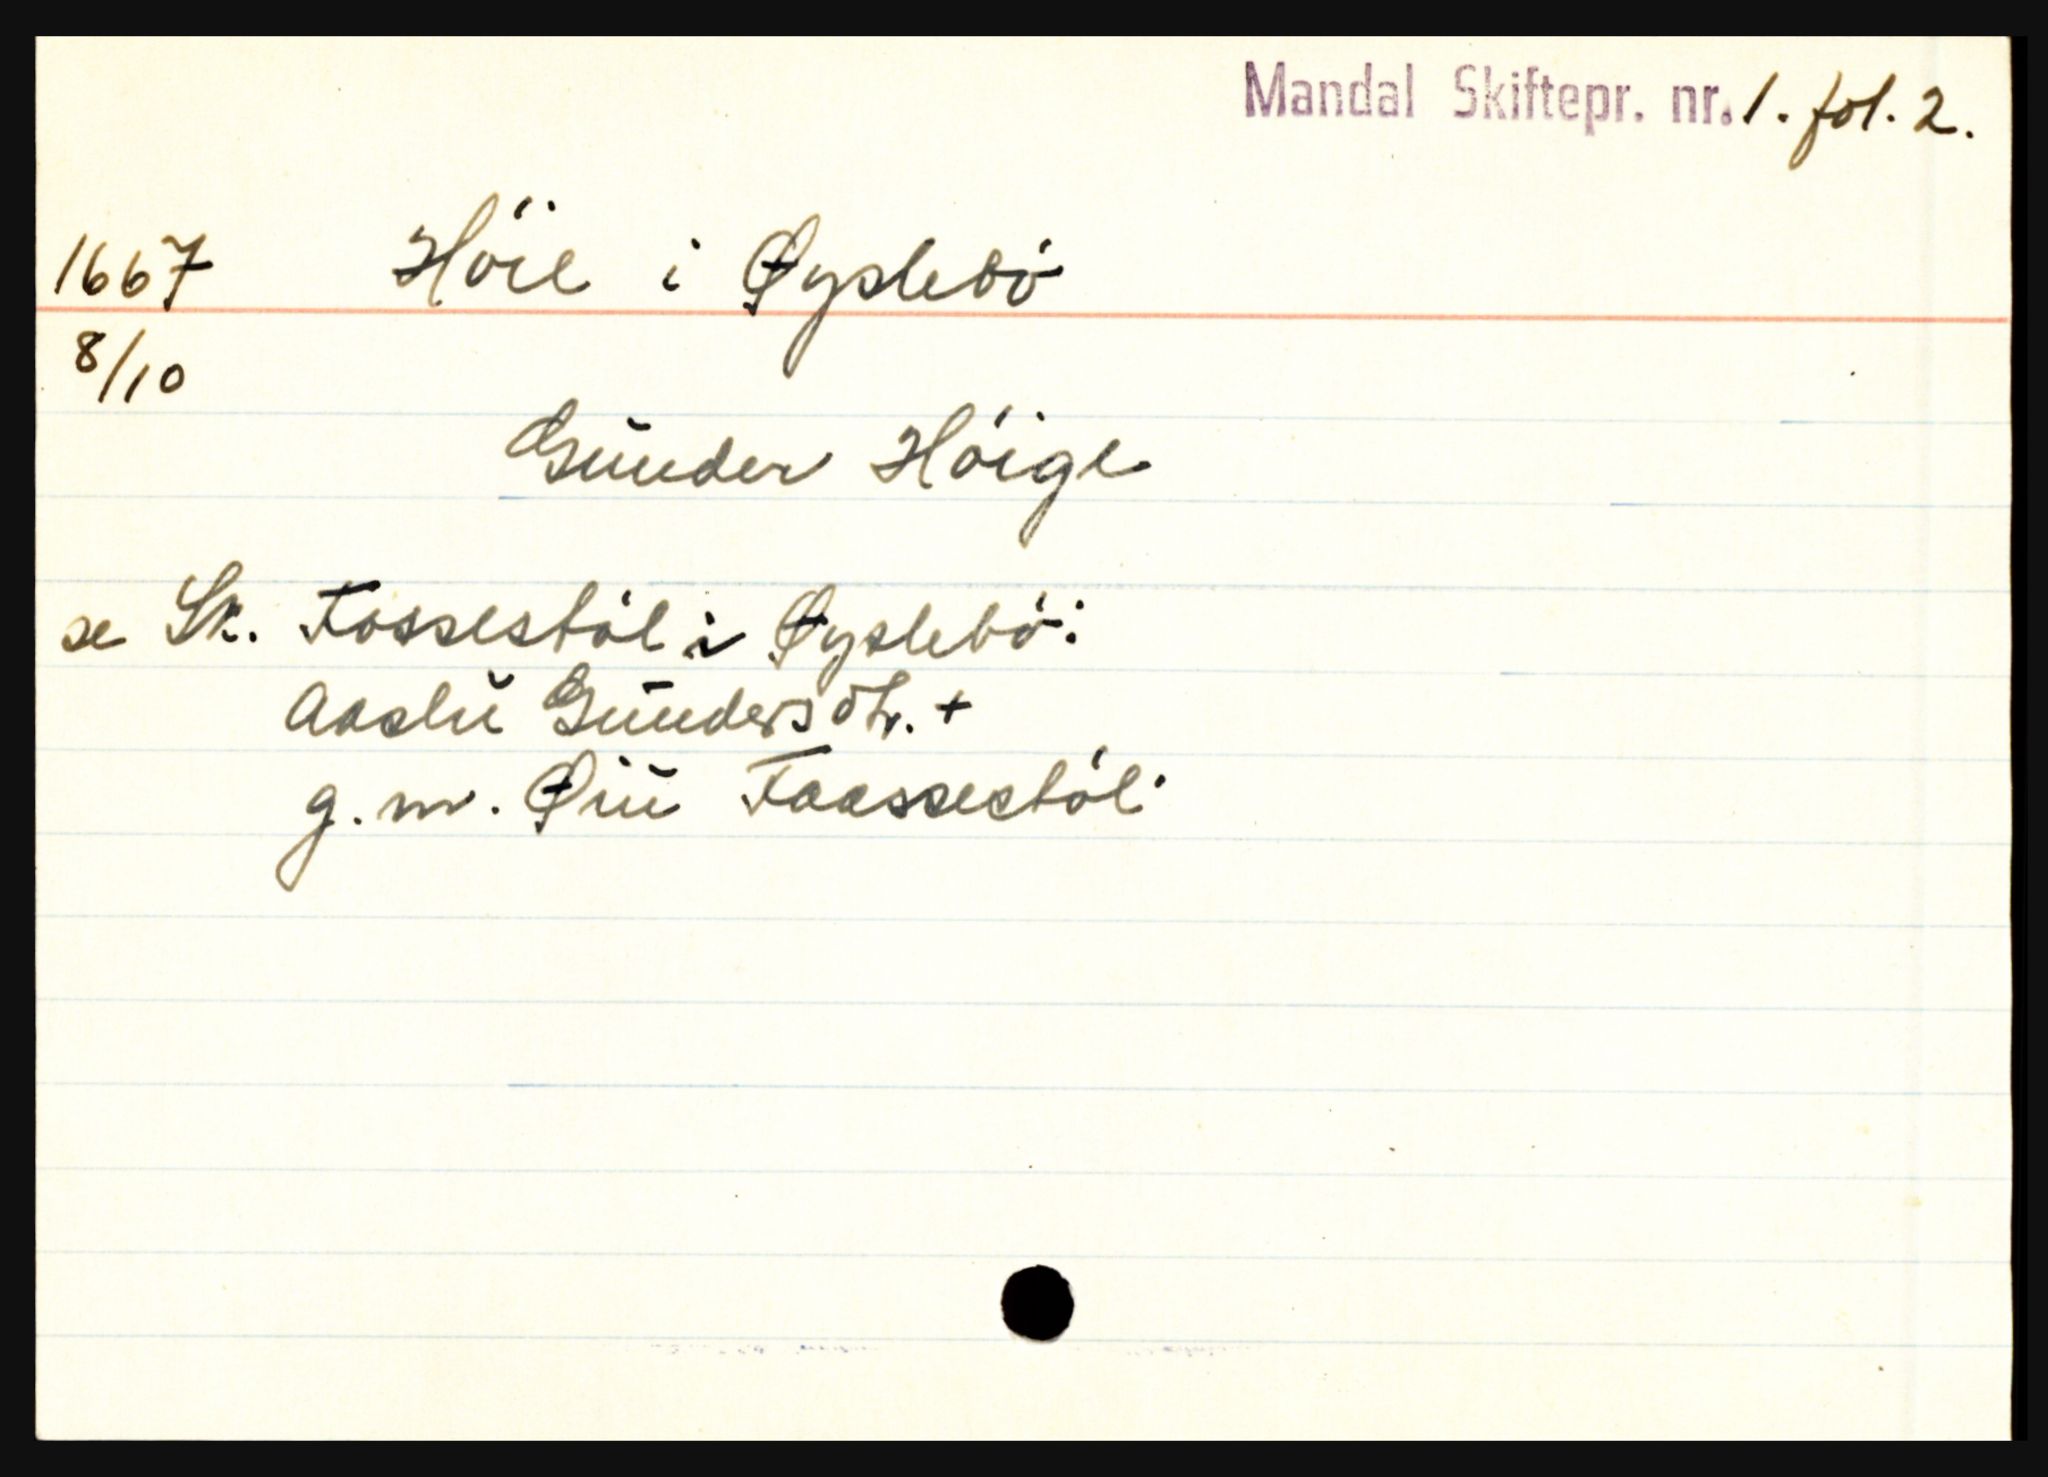 Mandal Skiftepr. nr. 1. fol. 2.
1667 Höie i Øyslebö
8/10
Gunder Höige
se Sk. Fossestöl i Øyslebö:
Aaslu Gundersdtr. +
g. m. Øiu Faassestöl